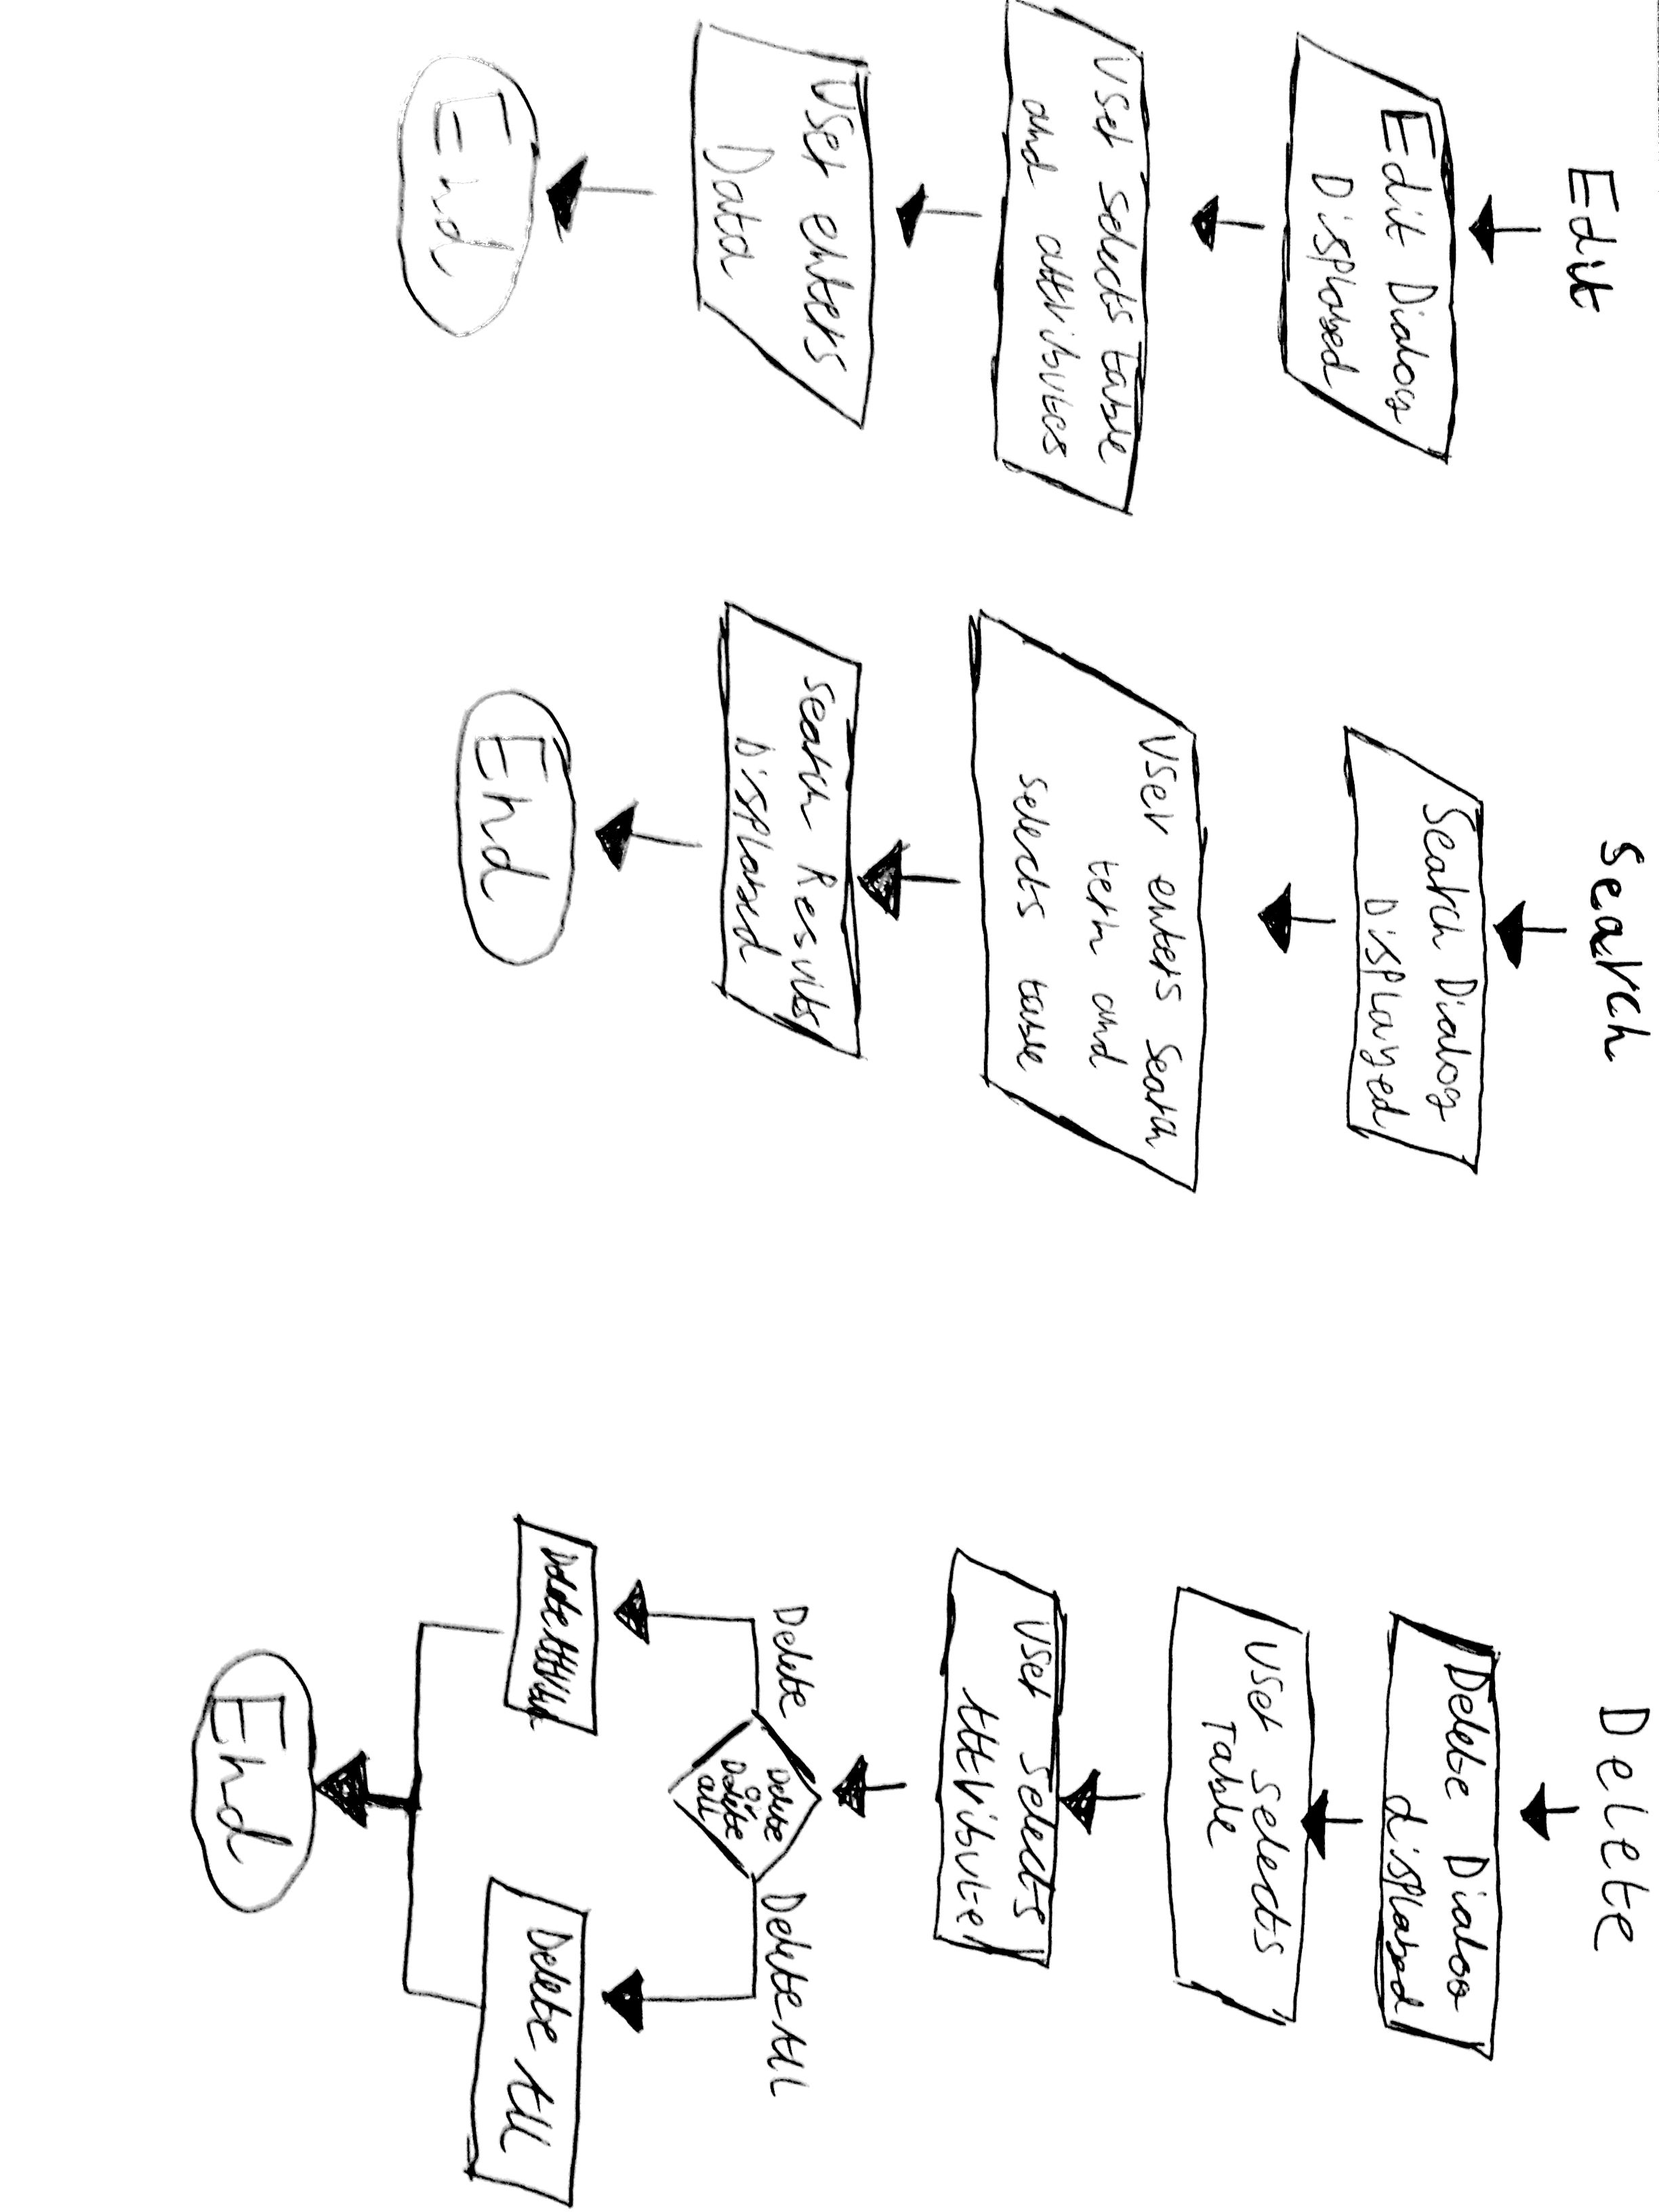 Edit
Edit Dialog
Displayed
User selects table
and attributes
User enters
Data
End
Search
Search Dialog
Displayed
User enters search
term and
selects table
Search Results
Displayed
End
Delete
Delete Dialog
displayed
User selects
Table
User selects
Attribute
Delete
or
Delete
all
Delete
Delete All
Delete Attribute
Delete All
End